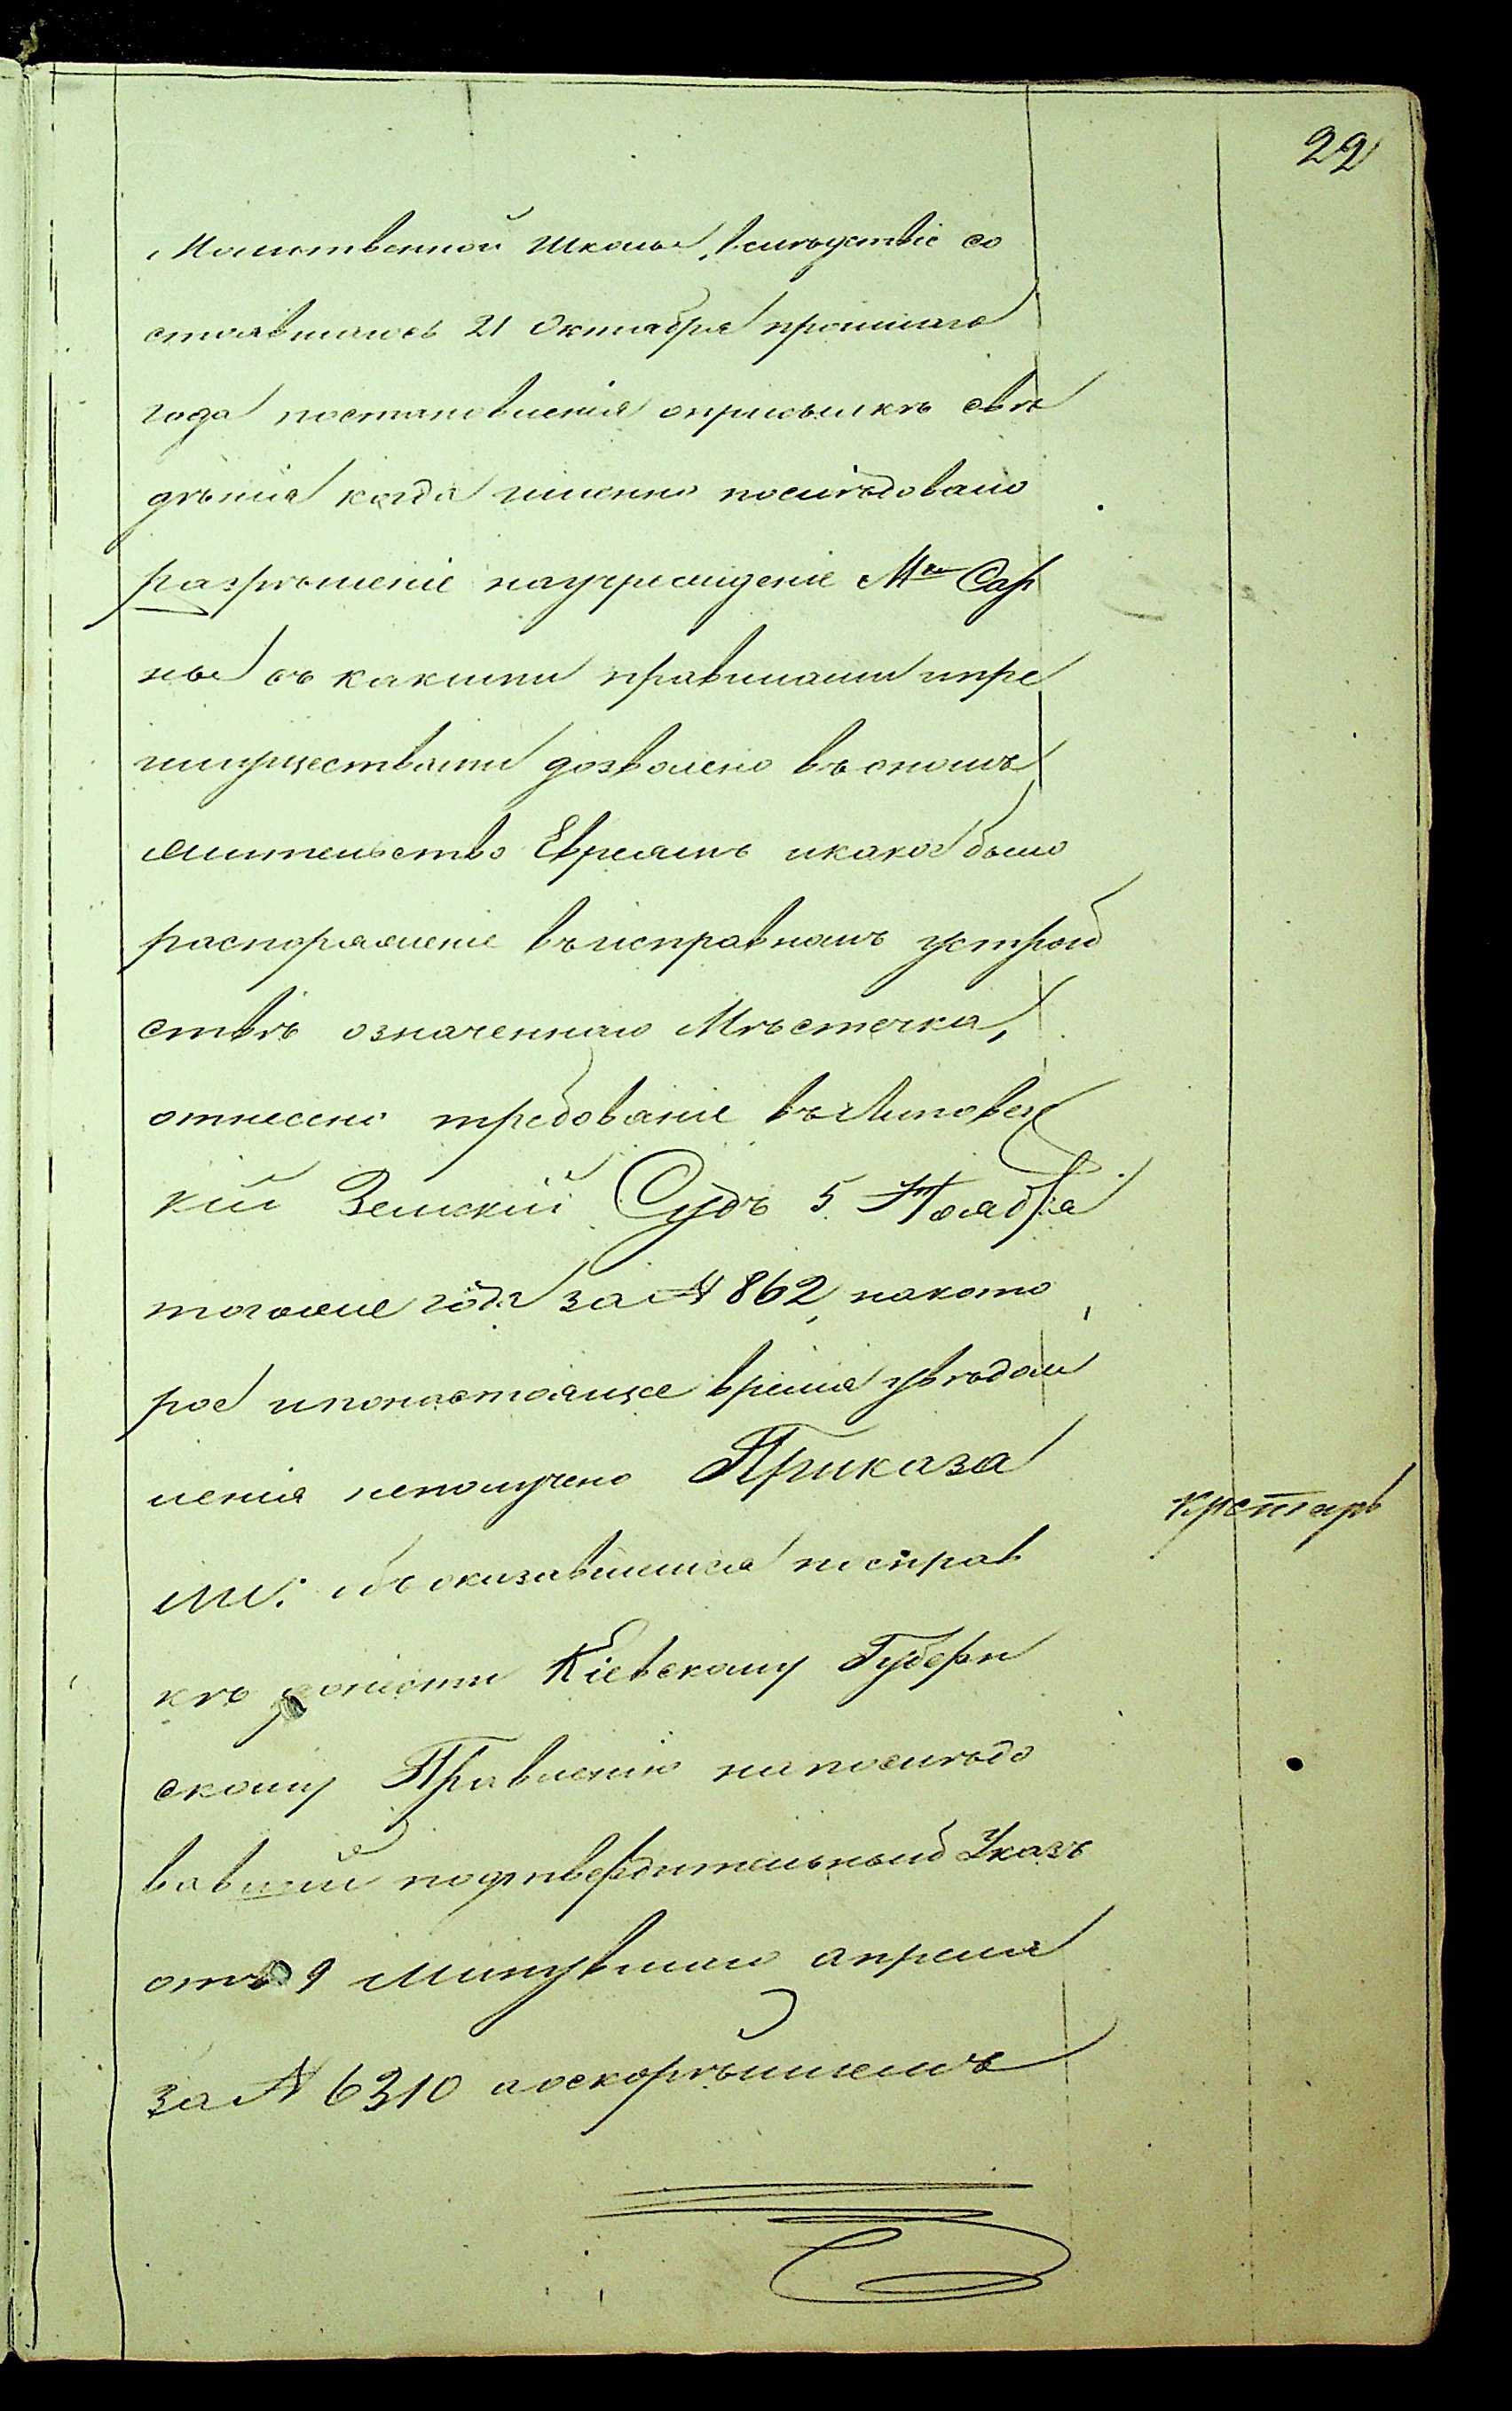 22
Молитвенной Школы, вследствіе со
стоявшагось 21 Октября прошлаго
года постановленія оприсылкѣ свѣ
дѣнія когда именно последовало
разрѣшеніе научрежденіе Мка Сар
ны съ какими правилами ипре
имуществами дозволено въ ономъ
жительство Евреямъ икакое было
распоряженіе въ исправномъ устрой
ствѣ означеннаго Мѣстечка,
отнесено требованіе въ Липовец
кій Земскій Судъ 5 Ноября
тогоже года за № 862, накото
рое ипонастоящее время уведом
ленія неполучено Приказа
ли: объ оказавшимся посправ
кѣ донести Кіевскому Губерн
скому Правленію напослѣдо
вавшій подтвердительный Указъ
отъ 9 Минувшаго апреля
за № 6310 аоскорѣйшемъ